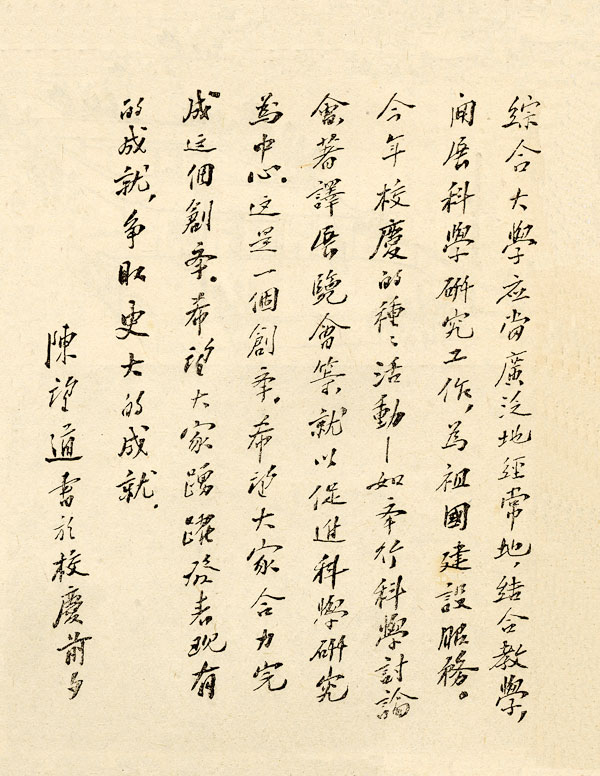 綜合大學应当廣泛地經常地，結合教學，
開展科學研究工作，為祖國建設服務。
今年校慶的種〻活動—如举行科學討論
會、著譯展覽會等，就以促進科學研究
為中心。这是一個創举。希望大家合力完
成这個創举。希望大家踴躍發表现有
的成就，争取更大的成就.
陳望道書於校慶前夕